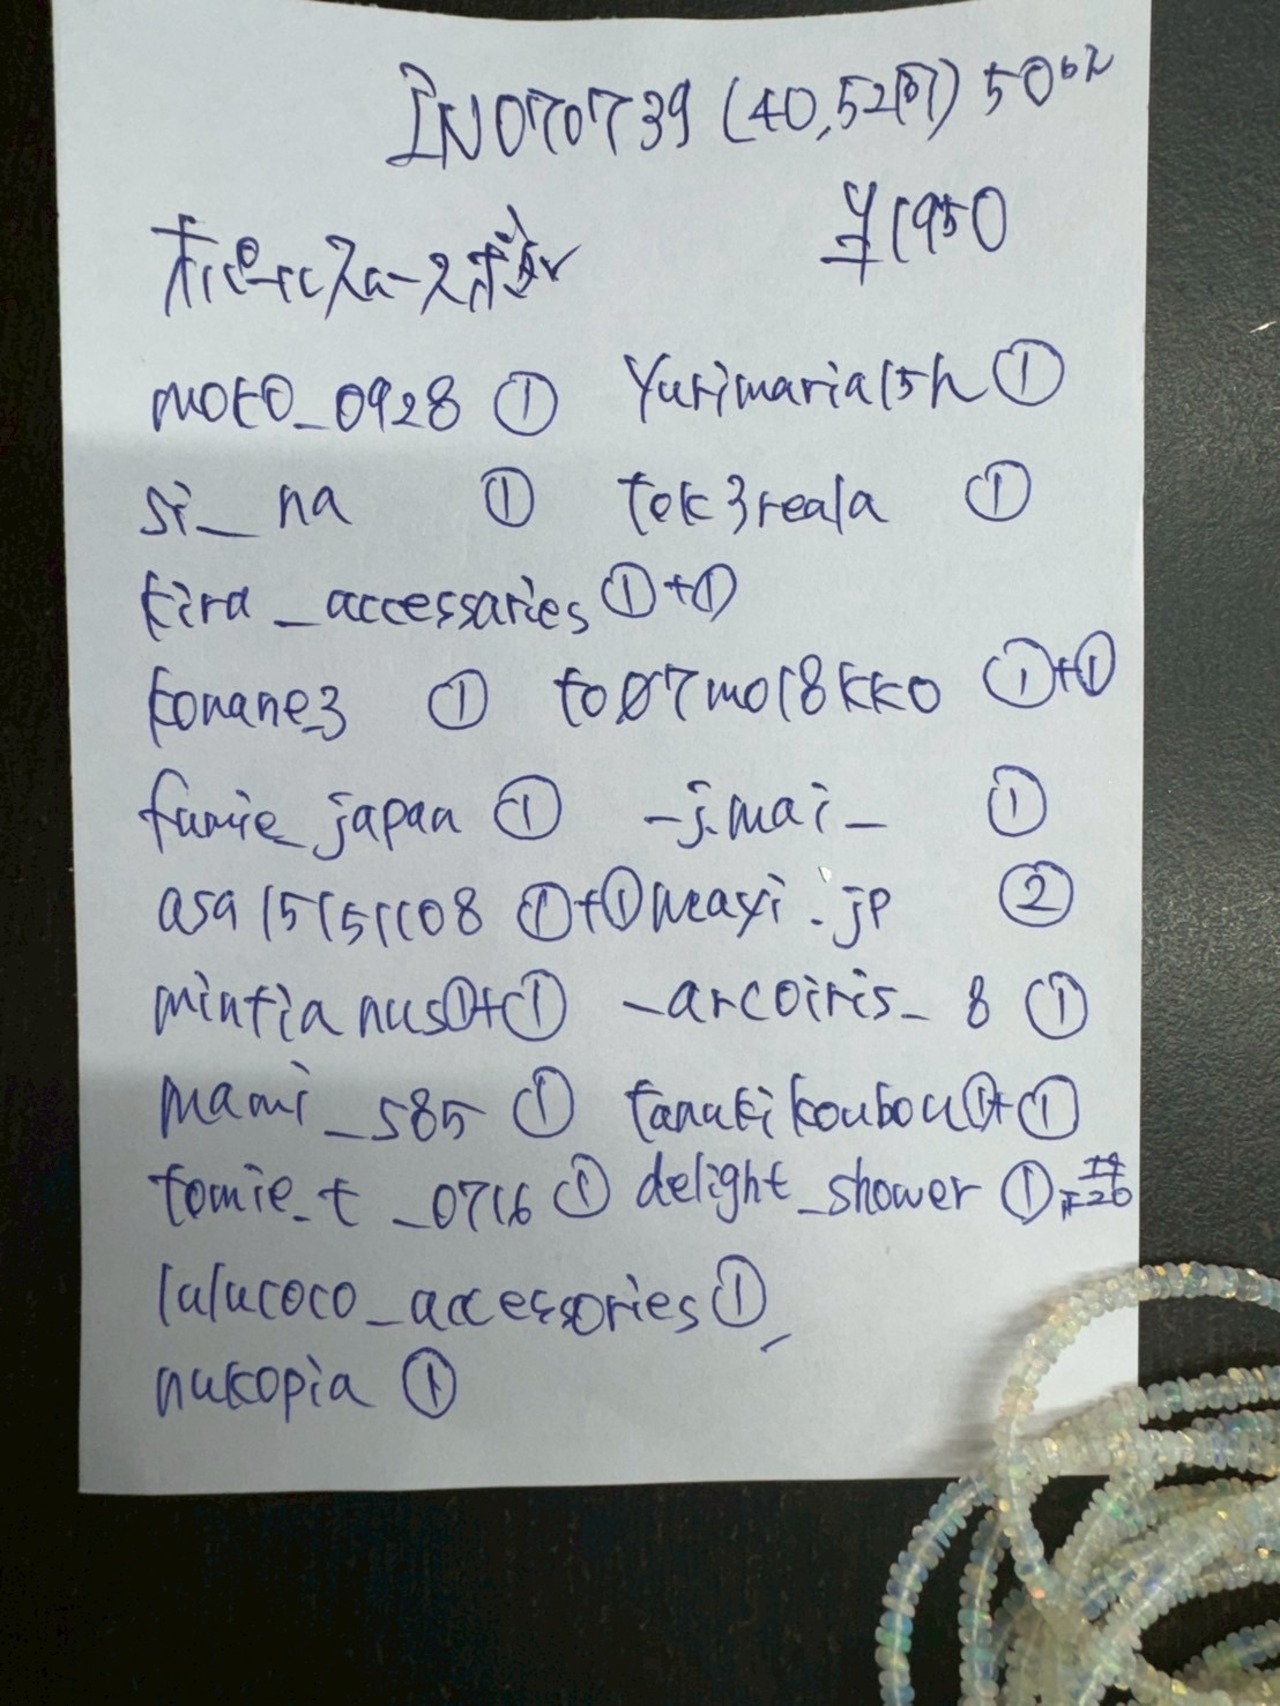 IN070739 (40,52的) 50
¥1950
moto_0928 ① Yurimaria15h ①
si__na ① tek3reala ①
kira_accessaries ①+①
konane3 ① to07mo18kko ①+①
fumie_japan ① _j.mai_ ①
asa15151108 ①+① meayi.jp ②
mintianus①+① _arcoiris_8 ①
mami_s85 ① tanukikoubou①+①
tomie_t_0716 ① delight_shower ①
lulucoco_accessories①
nukopia ①